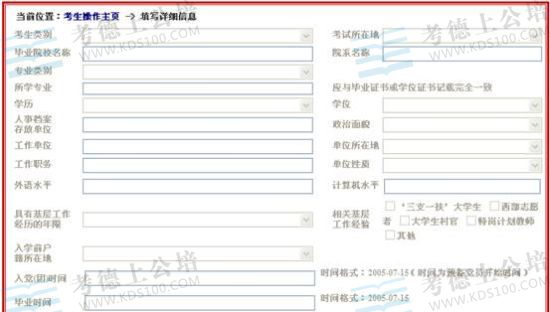 当前位置：考生操作主页 -> 填写详细信息
考生类别 考试所在地
毕业院校名称 院系名称
专业类别
所学专业 应与毕业证书或学位证书记载完全一致
学历 学位
人事档案
存放单位 政治面貌
工作单位 单位所在地
工作职务 单位性质
外语水平 计算机水平
具有基层工作
经历的年限
相关基层
工作经验
“三支一扶”大学生 西部志愿
者 大学生村官 特岗计划教师
其他
入学前户
籍所在地
入党(团)时间 时间格式：2005-07-15（时间为预备党员开始时间）
毕业时间 时间格式：2005-07-15
考德上公培
WWW.KDS100.COM
考德上公培
WWW.KDS100.COM
考德上公培
WWW.KDS100.COM
考德上公培
WWW.KDS100.COM